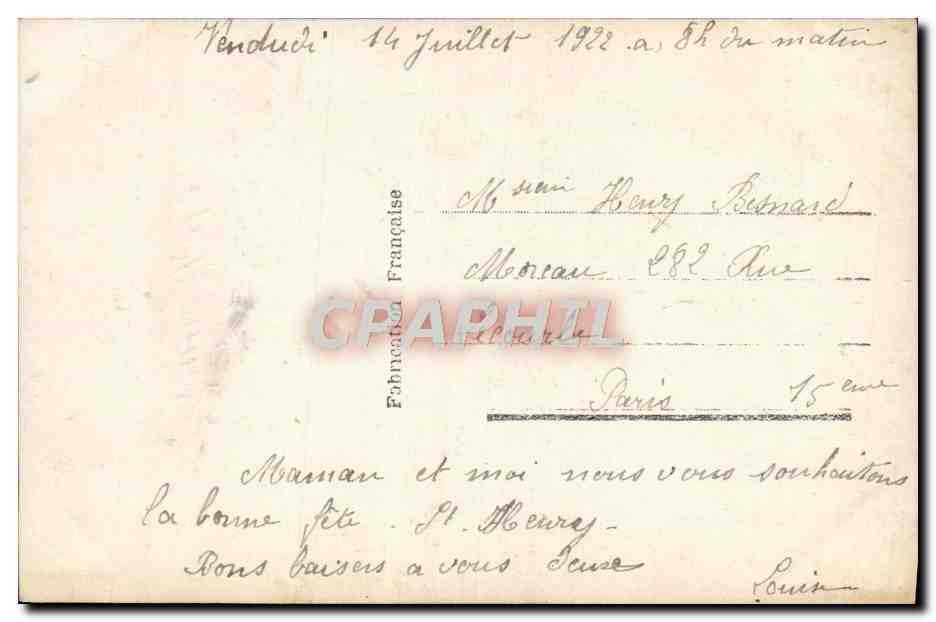 Vendudi 14 Juillet 1922 a 8h du matin
Msieur Henry Besnard
Moreau 282 Rue
Lecourbe
Paris 15eme
Fabrication Française
CPAPHIL
Maman et moi nous vous souhaitons
la bonne fête. St. Henry-
Bons baisers a vous deux
Louise